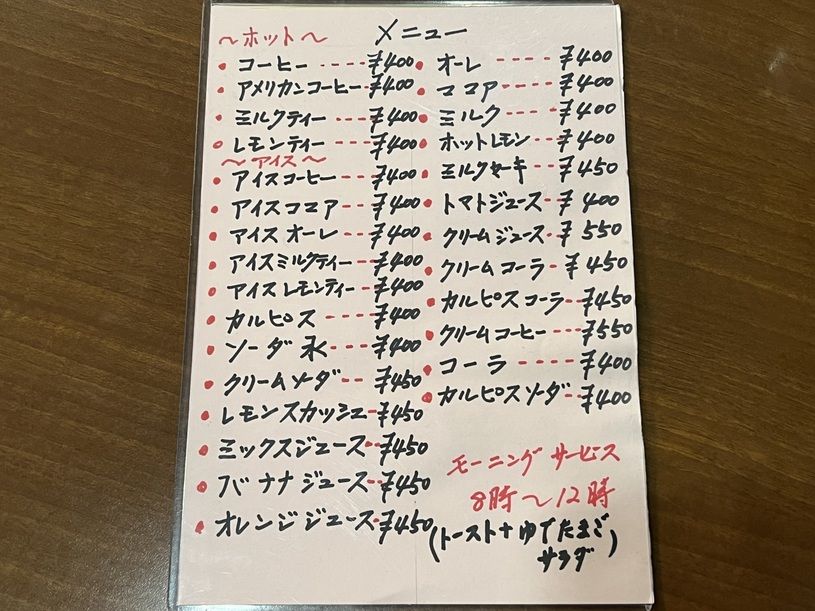 メニュー
～ホット～
・コーヒー ---- ¥400
・アメリカンコーヒー ¥400
・ミルクティー ---- ¥400
・レモンティー ---- ¥400
～アイス～
・アイスコーヒー -- ¥400
・アイスココア --- ¥400
・アイスオーレ --- ¥400
・アイスミルクティー -- ¥400
・アイスレモンティー -- ¥400
・カルピス ---- ¥400
・ソーダ水 --- ¥400
・クリームソーダ -- ¥450
・レモンスカッシュ - ¥450
・ミックスジュース -- ¥450
・バナナジュース -- ¥450
・オレンジジュース - ¥450
・オーレ ---- ¥400
・ココア ---- ¥400
・ミルク ---- ¥400
・ホットレモン --- ¥400
・ミルクセーキ -- ¥450
・トマトジュース -- ¥400
・クリームジュース -- ¥550
・クリームコーラ -- ¥450
・カルピスコーラ -- ¥450
・クリームコーヒー --- ¥550
・コーラ ---- ¥400
・カルピスソーダ -- ¥400
モーニングサービス
8時～12時
(トースト+ゆでたまご
サラダ)